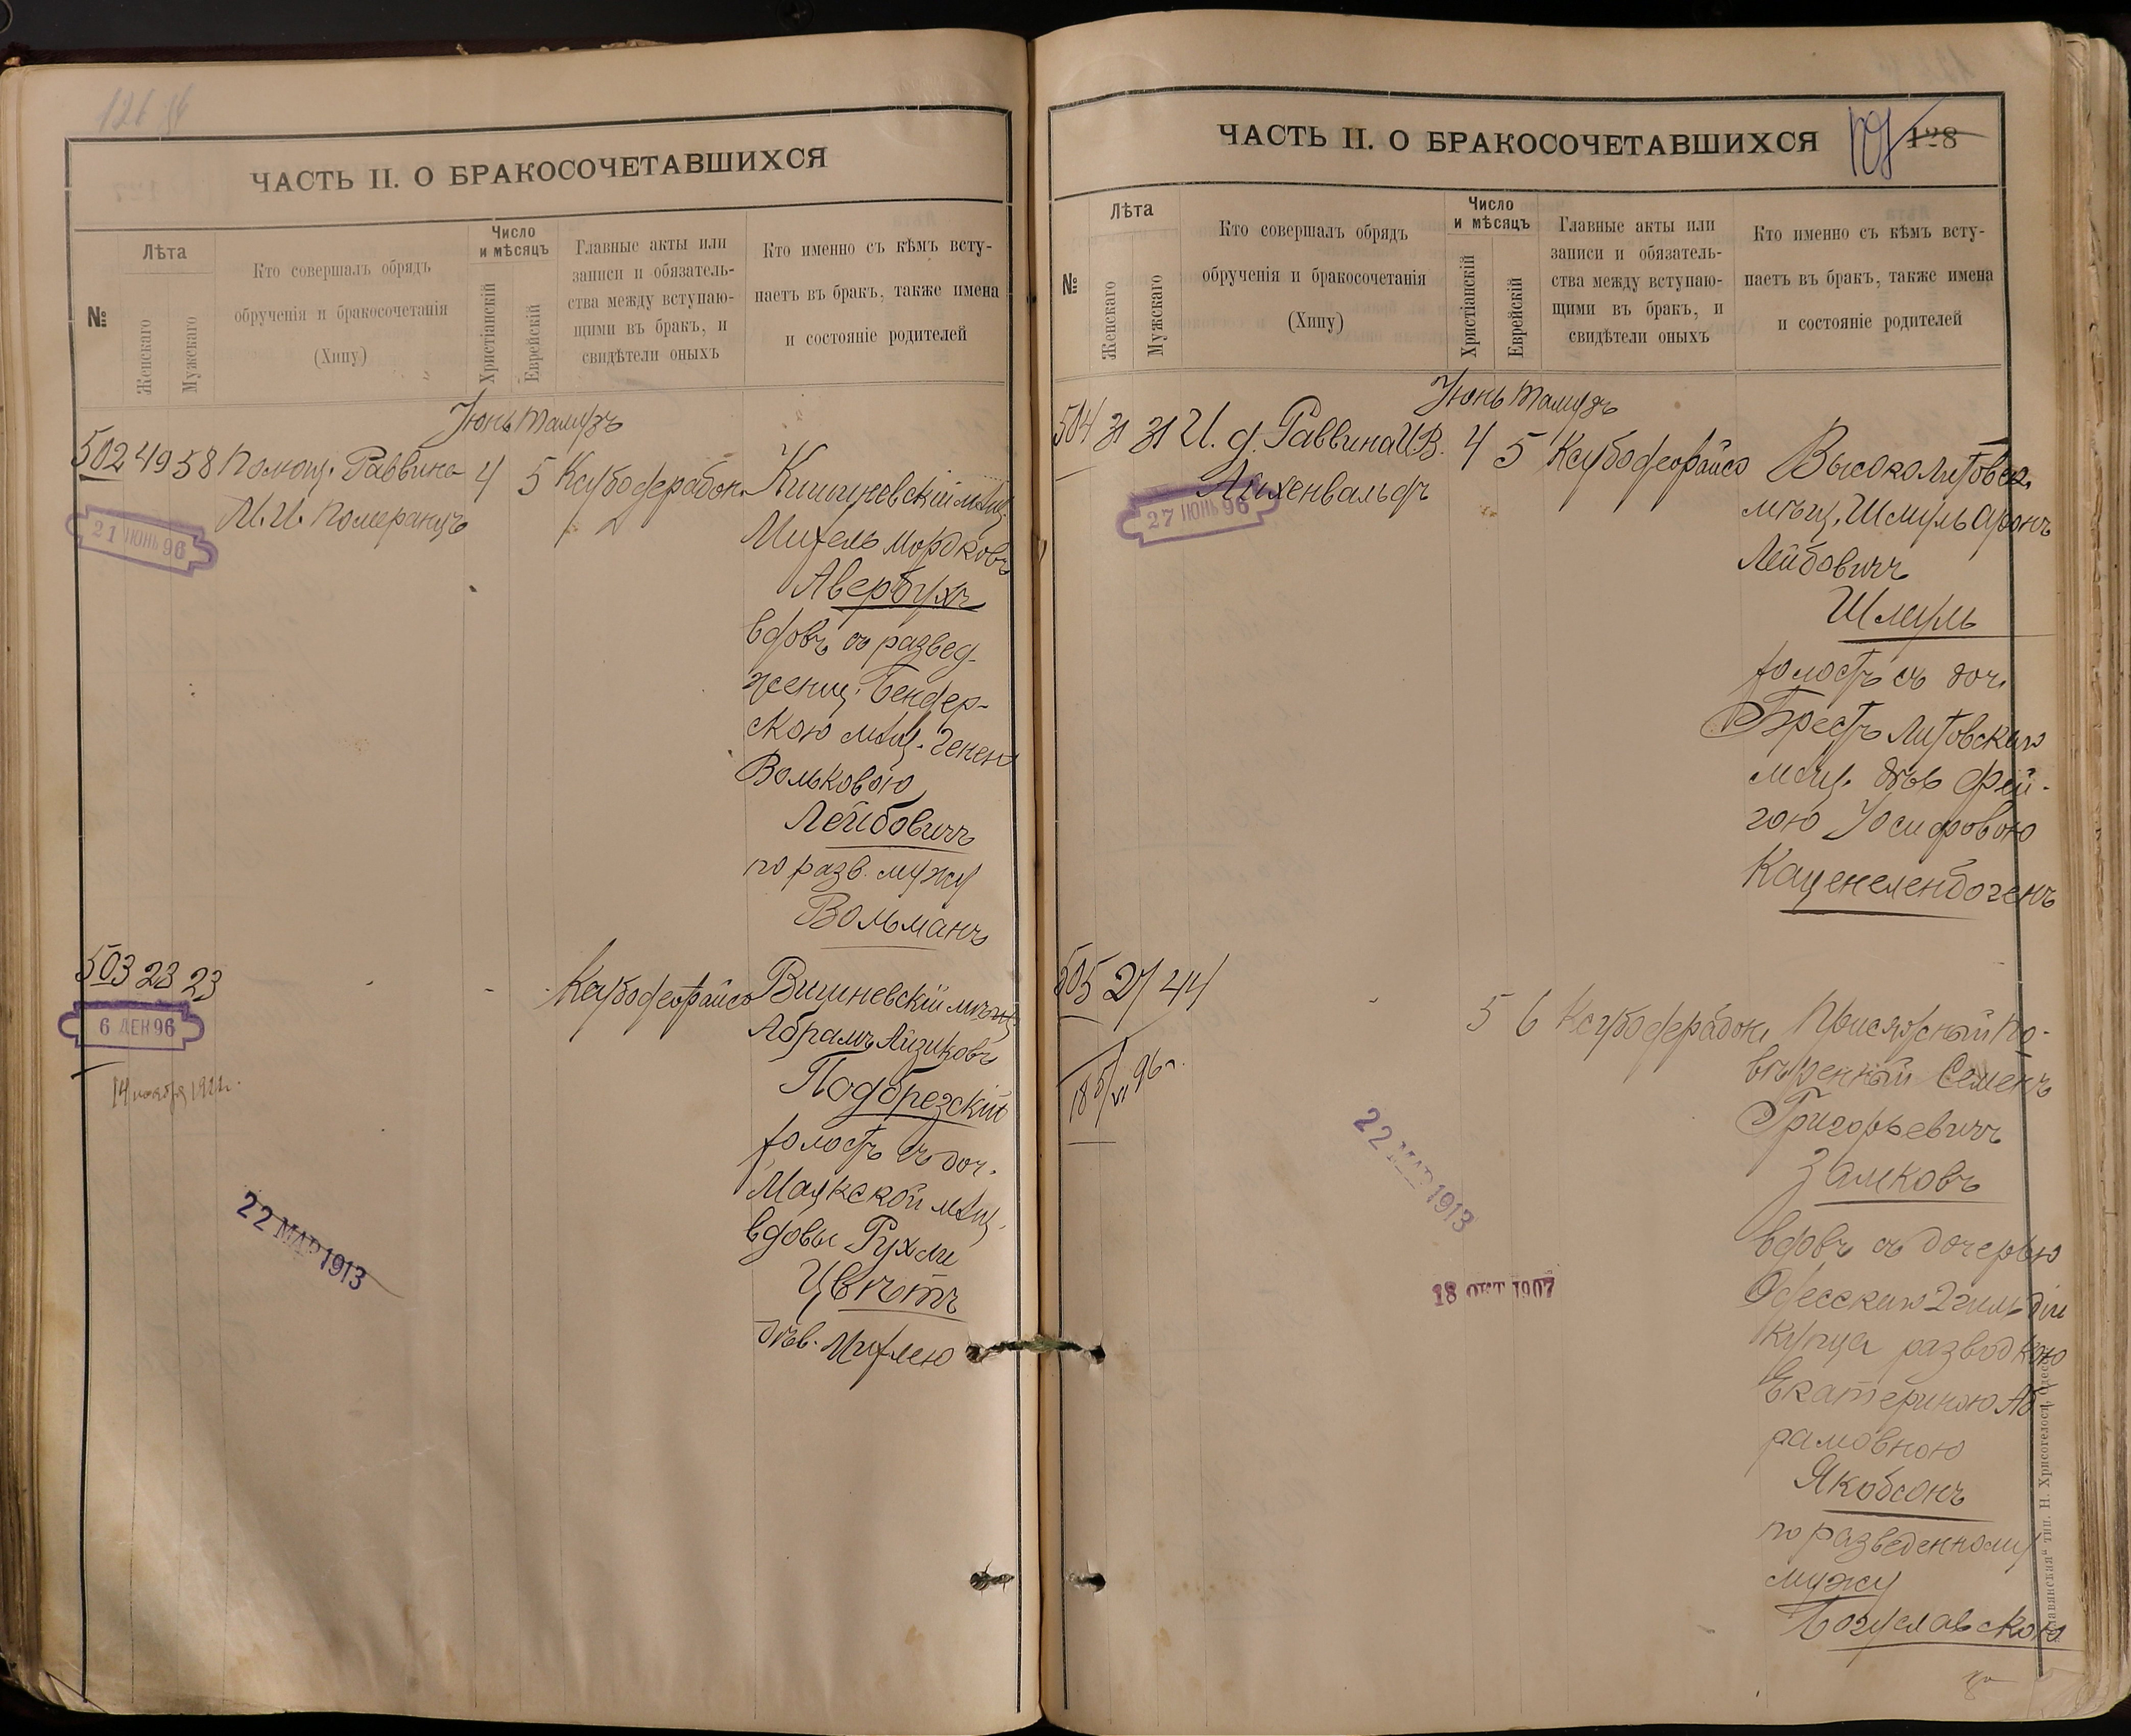 ЧАСТЬ II. О БРАКОСОЧЕТАВШИХСЯ
№
Лѣта
Женскаго
Мужскаго
Кто совершалъ обрядъ
обрученія и бракосочетанія
(Хипу)
Число
и мѣсяцъ
Христіанскій
Еврейскій
Главные акты или
записи и обязатель-
ства между вступаю-
щими въ бракъ, и
свидѣтели оныхъ
Кто именно съ кѣмъ всту-
паетъ въ бракъ, также имена
и состояніе родителей
Іюнь Тамузъ
502 49 58 Помощ. Раввина 4 5
М. И. Померанцъ
21 ІЮНЬ 96
Кишиневскій мѣщ.
Михель Мордковъ
Авербухъ
вдовъ съ развед-
женщ. Бендер-
скою мѣщ. Ененю
Вольковою
Лейбовичъ
по разв. мужу
Вольманъ
503 23 23
6 ДЕК 96
Вишневскій мѣщ.
Абрамъ Айзиковъ
Подбрезскій
холостъ съ доч.
Маякской мѣщ.
вдовы Рухли
Цвѣтъ
дѣв. Михлею
22 МАР 1913
ЧАСТЬ II. О БРАКОСОЧЕТАВШИХСЯ
128
№
Лѣта
Женскаго
Мужскаго
Кто совершалъ обрядъ
обрученія и бракосочетанія
(Хипу)
Число
и мѣсяцъ
Христіанскій
Еврейскій
Главные акты или
записи и обязатель-
ства между вступаю-
щими въ бракъ, и
свидѣтели оныхъ
Кто именно съ кѣмъ всту-
паетъ въ бракъ, также имена
и состояніе родителей
Іюнь Тамузъ
504 31 31 И. д. Раввина И.В. 4 5
Айхенвальдъ
27 ІЮНЬ 96
Высоколитовск.
мѣщ. Шмуль Аронъ
Лейбовичъ
Шмуль
холостъ съ доч.
Брестъ Литовскаго
мѣщ. дѣв Фей-
гою Іосифовою
Каценеленбогенъ
505 27 44 5 6
Присяжный по-
вѣренный Семенъ
Григорьевичъ
Замковъ
вдовъ съ дочерью
Одесскаго 2 гильдіи
купца разводкою
Екатериною Аб
рамовною
Якобсонъ
по разведенному
мужу
Богуславскою
22 МАР 1913
18 ОКТ 1907